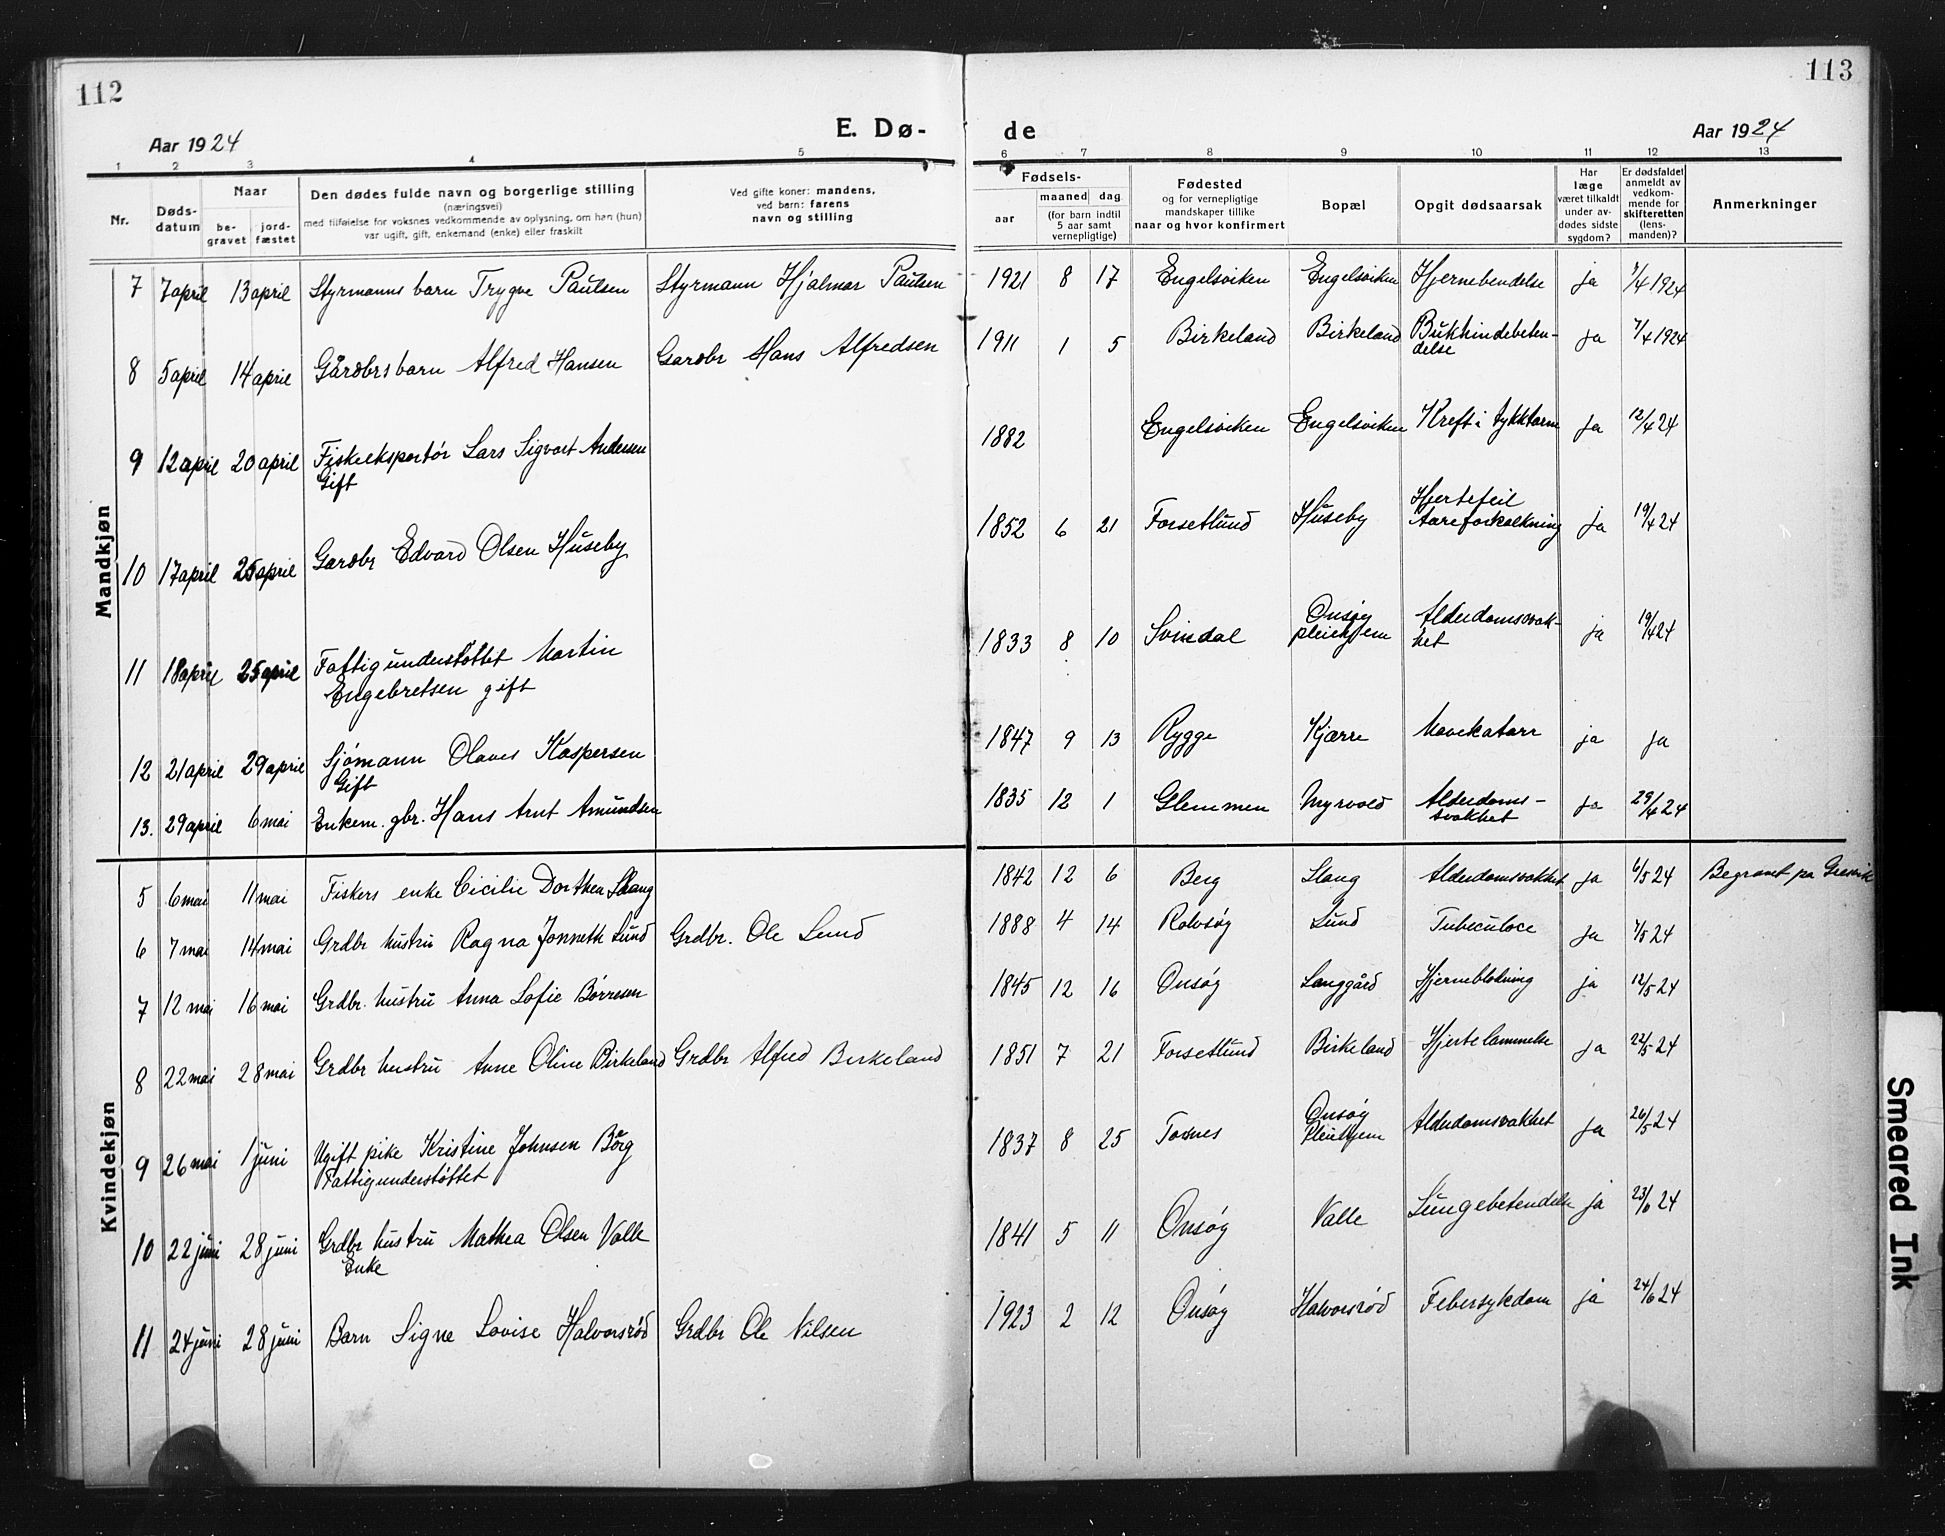 112
113
Aar 1924
E. Dø-
de
Aar 1924
1 2 3 4 5 6 7 8 9 10 11 12 13
Nr.
Døds-
datum
Naar
be-
gravet
jord-
fæstet
Den dødes fulde navn og borgerlige stilling
(næringsvei)
med tilføielse for voksnes vedkommende av oplysning, om han (hun)
var ugift, gift, enkemand (enke) eller fraskilt
Ved gifte koner: mandens,
ved barn: farens
navn og stilling
Fødsels-
aar
maaned dag
(for barn indtil
5 aar samt
vernepligtige)
Fødested
og for vernepligtige
mandskaper tillike
naar og hvor konfirmert
Bopæl
Opgit dødsaarsak
Har
læge
været tilkaldt
under av-
dødes sidste
sygdom?
Er dødsfaldet
anmeldt av
vedkom-
mende for
skifteretten
(lens-
manden)?
Anmerkninger
Mandkjøn
7 7 april 13 april Styrmanns barn Trygve Paulsen Styrmann Hjalmar Paulsen 1921 8 17 Engelsviken Engelsviken Hjernebendelse ja 7/4 1924
8 5 april 14 april Gårdbrs barn Alfred Hansen Gardbr Hans Alfredsen 1911 1 5 Birkeland Birkeland Bukhindebeten-
delse ja 7/4 1924
9 12 april 20 april Fiskeeksportør Lars Sigvart Andersen
Gift 1882 Engelsviken Engelsviken Kreft i tykktarm ja 12/4 24
10 17 april 25 april Gardbr Edvard Olsen Huseby 1852 6 21 Forsetlund Huseby Hjertefeil
Aareforkalkning ja 19/4 24
11 18 april 25 april Fattigunderstøttet Martin
Engebretsen gift 1833 8 10 Svindal Onsøy
pleiehjem Alderdomssvak-
het ja 19/4 24
12 21 april 29 april Sjømann Olaves Kaspersen
Gift 1847 9 13 Rygge Kjærre Mavekatarr ja ja
13. 29 april 6 mai Enkem. gbr. Hans Arnt Amundsen 1835 12 1 Glemmen Myrvold Alderdoms-
svakhet ja 29/4 24
Kvindekjøn
5 6 mai 11 mai Fiskers enke Cicilie Dorthea Slang 1842 12 6 Berg Slang Alderdomsvakhet ja 6/5 24 Begravet pa Gresvik
6 7 mai 14 mai Grdbr hustru Ragna Jonnette Lund Grdbr. Ole Lund 1888 4 14 Rolvsøy Lund Tubeculoce ja 7/5 24
7 12 mai 16 mai Grdbr. hustru Anna Sofie Børresen 1845 12 16 Onsøy Langgård Hjerneblødning ja 12/5 24
8 22 mai 28 mai Grdbr hustru Anne Oline Birkeland Grdbr Alfred Birkeland 1851 7 21 Forsetlund Birkeland Hjertelammelse ja 22/5 24
9 26 mai 1 juni Ugift pike Kristine Johnsen Borg
Fattigunderstøttet 1837 8 25 Torsnes Onsøy
Pleiehjem Alderdomsvakhet ja 26/5 24
10 22 juni 28 juni Grdbr hustru Mathea Olsen Valle
Enke 1841 5 11 Onsøy Valle Lungebetendelse ja 23/6 24
11 24 juni 28 juni Barn Signe Lovise Halvorsrød Grdbr Ole Nilsen 1923 2 12 Onsøy Halvorsrød Febersykdom ja 24/6 24
Smeared Ink